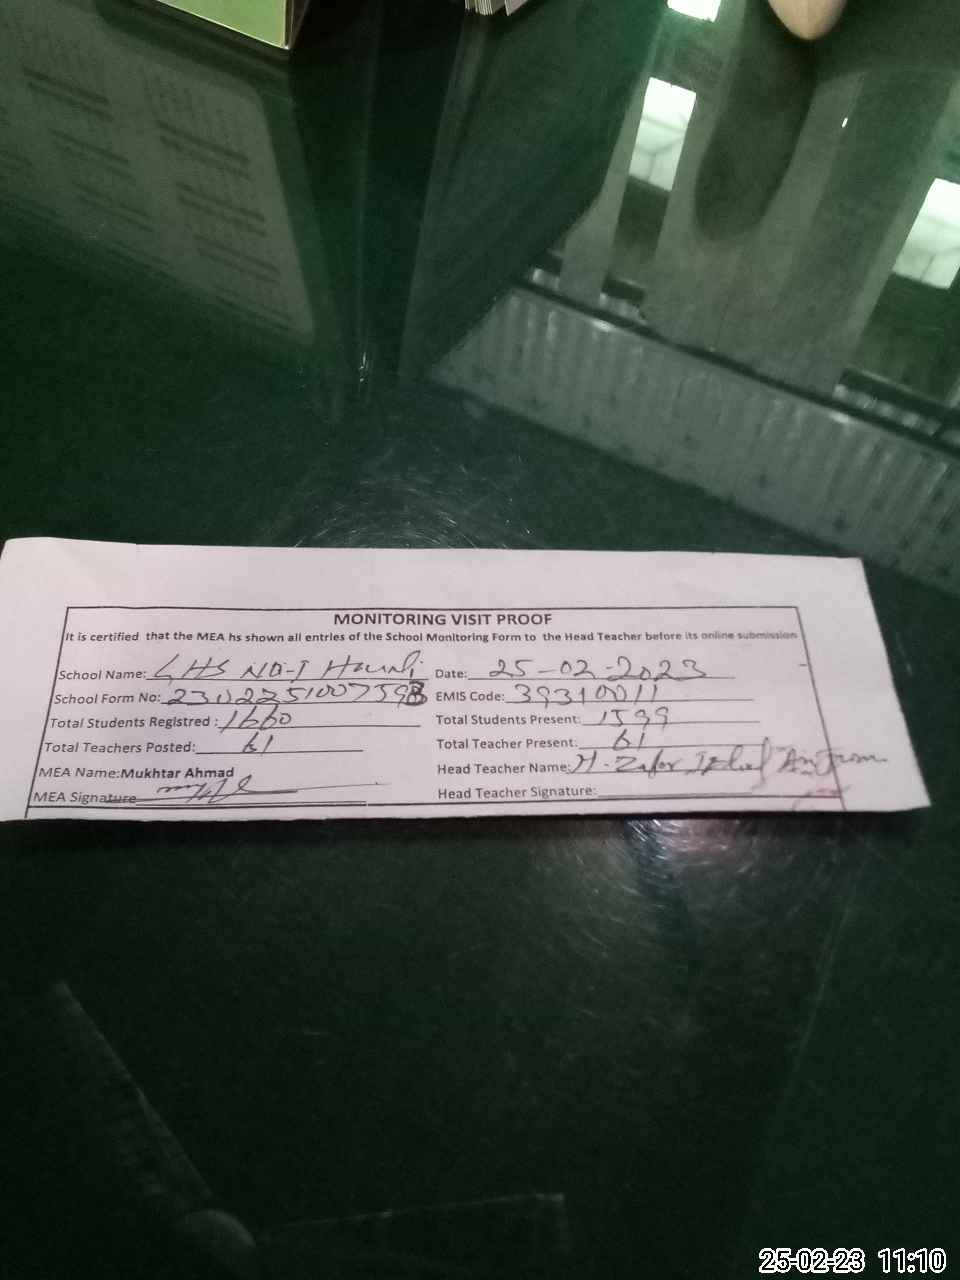 MONITORING VISIT PROOF
It is certified that the MEA hs shown all entries of the School Monitoring Form to the Head Teacher before its online submission
School Name: GHS NO-I Date: 25-02-2023
School Form No: EMIS Code: 39310011
Total Students Registred : 1660 Total Students Present: 1599
Total Teachers Posted: 61 Total Teacher Present: 61
MEA Name: Mukhtar Ahmad Head Teacher Name: M. Zafar Iqbal
MEA Signature Head Teacher Signature:
25-02-23 11:10